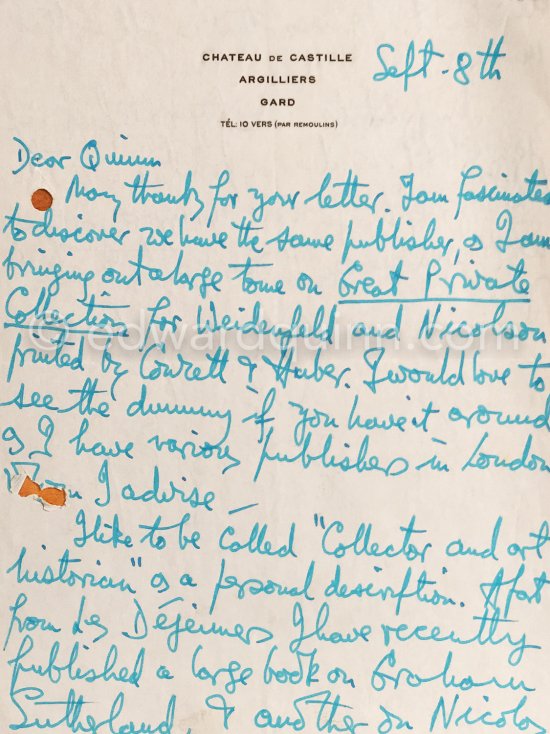 CHATEAU DE CASTILLE
ARGILLIERS
GARD
TÉL: 10 VERS (PAR REMOULINS)
Sept. 8th
Dear Quinn
Many thanks for your letter. I am fascinated
to discover we have the same publisher, as I am
bringing out a large tome on Great Private
Collections for Weidenfeld and Nicolson
© edwardquinn.com
printed by Conzett & Huber. I would love to
see the dummy if you have it around
as I have various publishers in London
whom I advise —
I like to be called "Collector and art
historian" as a personal description. Apart
from Les Déjeuners I have recently
published a large book on Graham
Sutherland, & another on Nicolas